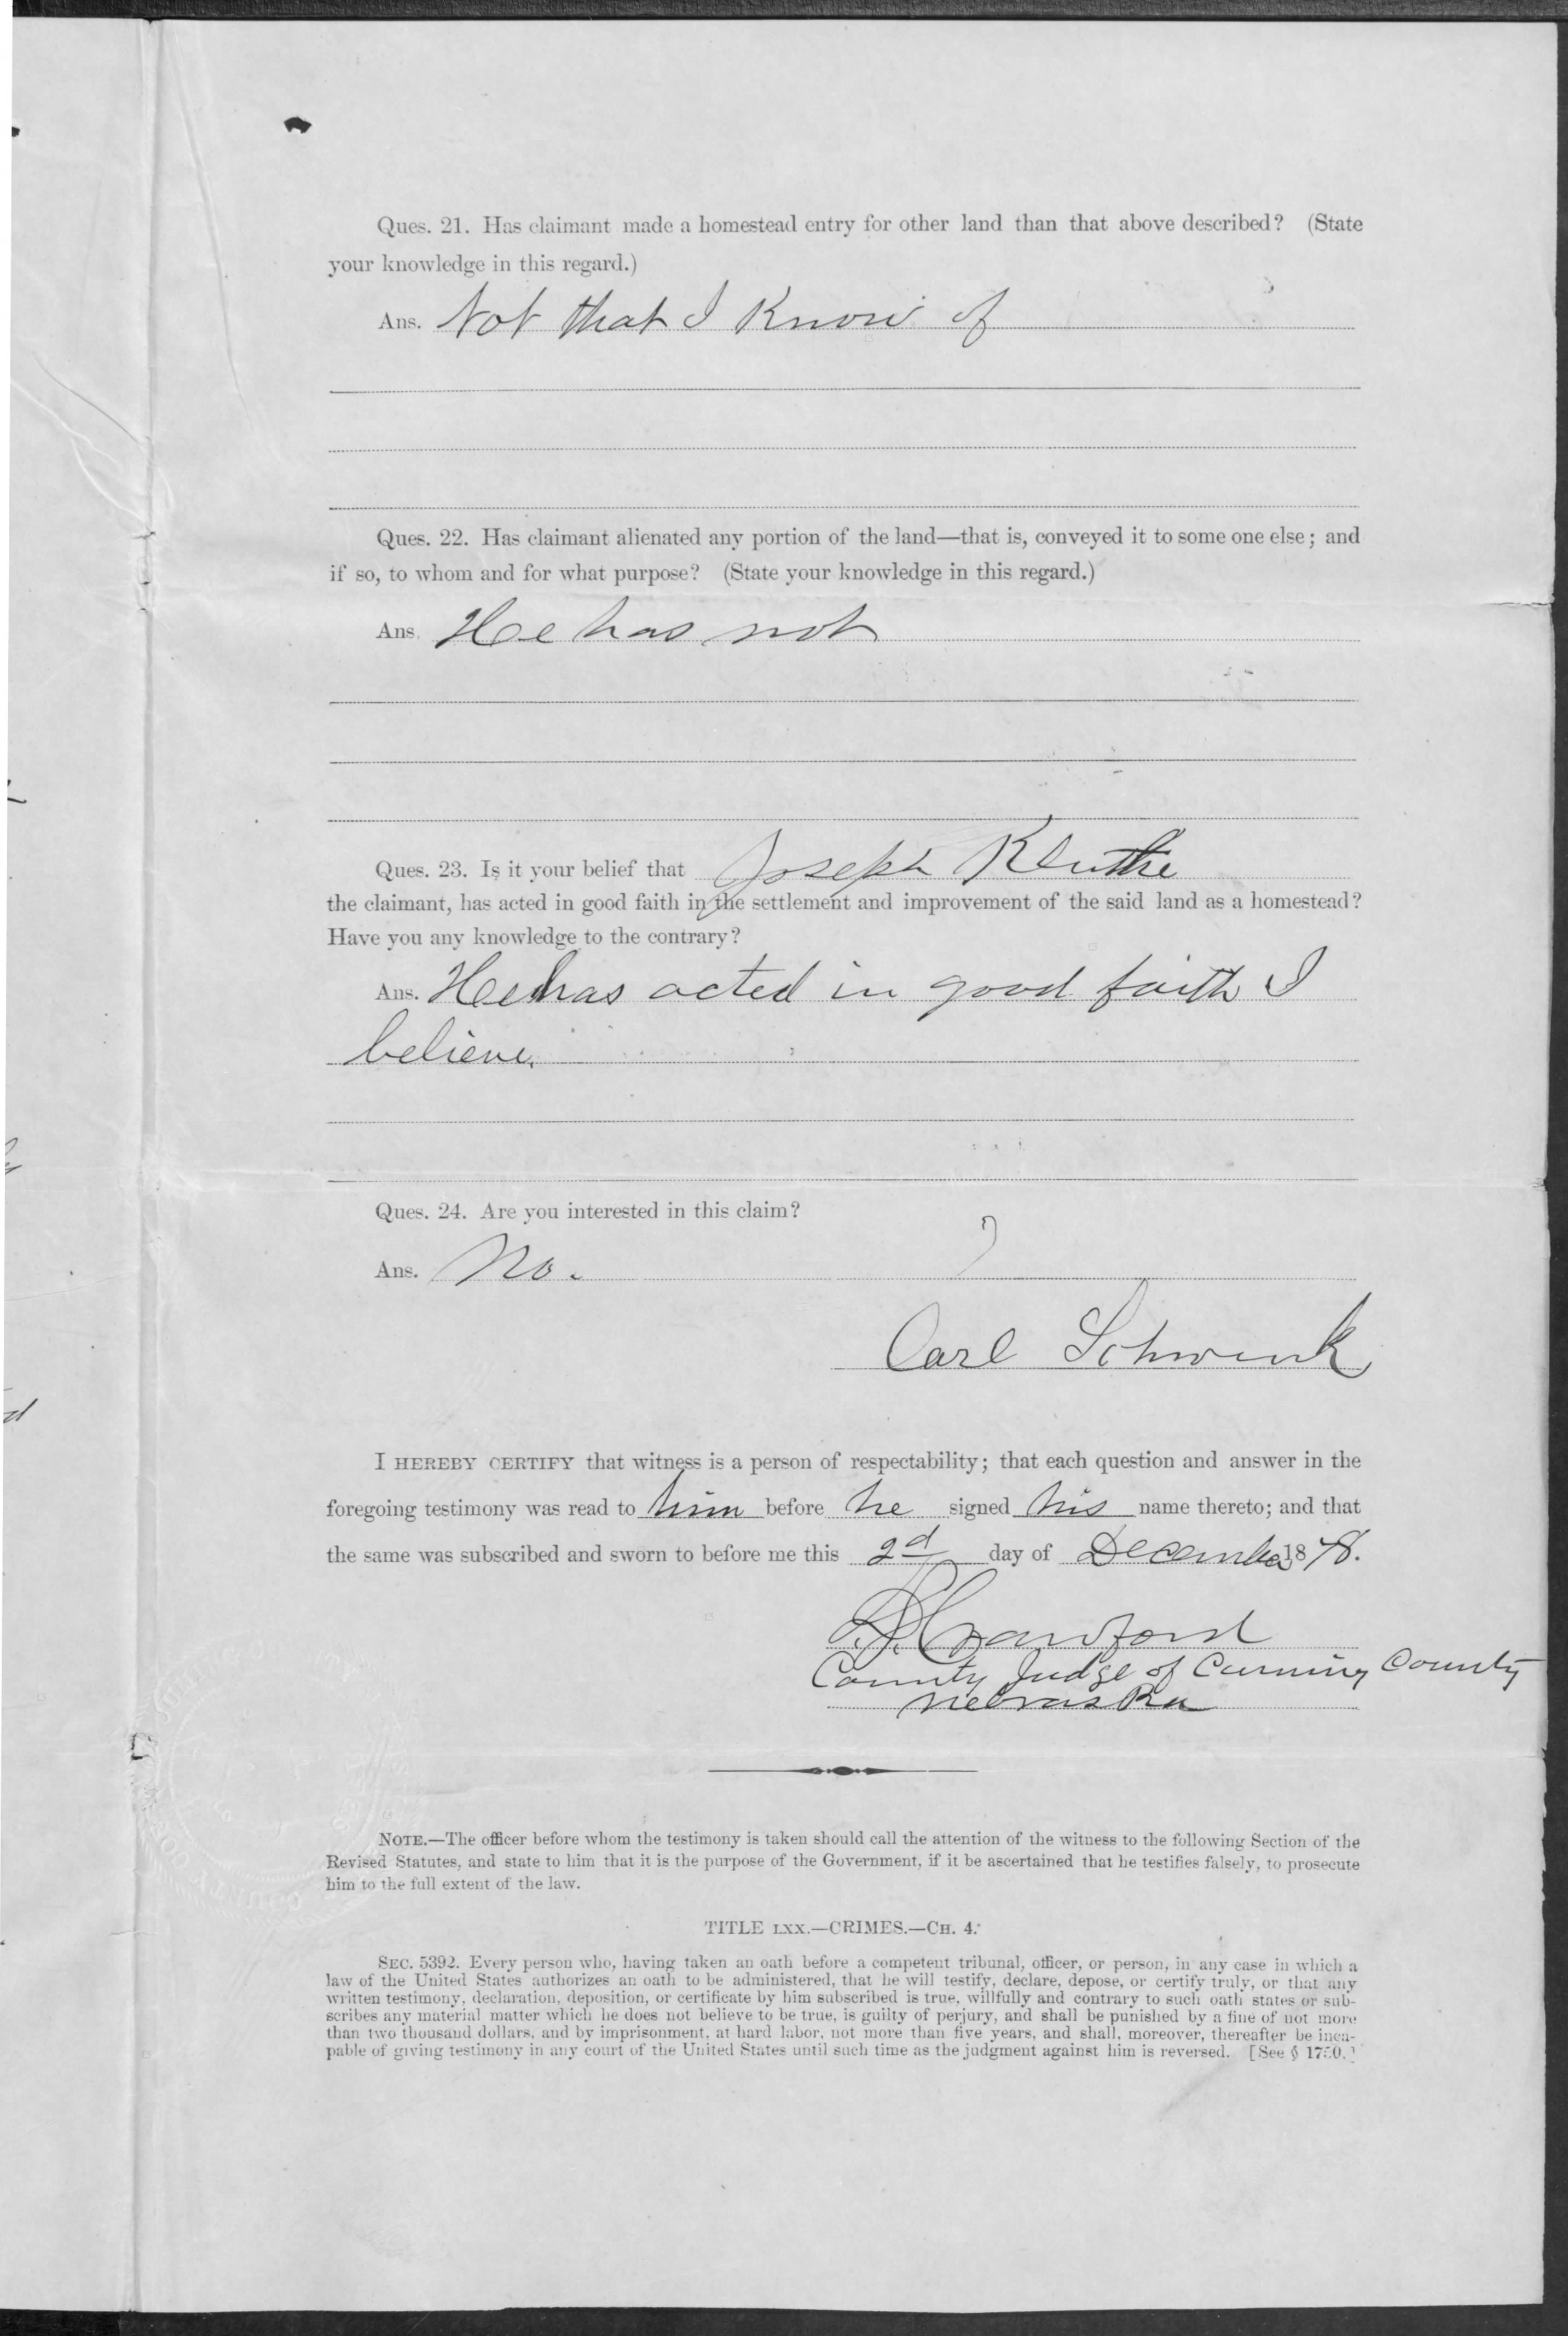 Ques. 21. Has claimant made a homestead entry for other land than that above described? (State
your knowledge in this regard.)
Ans. Not that I Know of
Ques. 22. Has claimant alienated any portion of the land—that is, conveyed it to some one else; and
if so, to whom and for what purpose? (State your knowledge in this regard.)
Ans. He has not
Ques. 23. Is it your belief that Joseph Kluthe
the claimant, has acted in good faith in the settlement and improvement of the said land as a homestead?
Have you any knowledge to the contrary?
Ans. He has acted in good faith I
believe.
Ques. 24. Are you interested in this claim?
Ans. No.
Carl Schwenk
I HEREBY CERTIFY that witness is a person of respectability; that each question and answer in the
foregoing testimony was read to him before he signed his name thereto; and that
the same was subscribed and sworn to before me this 2d day of December 1878.
Crawford
County Judge of Cuming County
Nebraska
NOTE.—The officer before whom the testimony is taken should call the attention of the witness to the following Section of the
Revised Statutes, and state to him that it is the purpose of the Government, if it be ascertained that he testifies falsely, to prosecute
him to the full extent of the law.
TITLE LXX.—CRIMES.—CH. 4.
SEC. 5392. Every person who, having taken an oath before a competent tribunal, officer, or person, in any case in which a
law of the United States authorizes an oath to be administered, that he will testify, declare, depose, or certify truly, or that any
written testimony, declaration, deposition, or certificate by him subscribed is true, willfully and contrary to such oath states or sub-
scribes any material matter which he does not believe to be true, is guilty of perjury, and shall be punished by a fine of not more
than two thousand dollars, and by imprisonment, at hard labor, not more than five years, and shall, moreover, thereafter be inca-
pable of giving testimony in any court of the United States until such time as the judgment against him is reversed. [See § 1750.]